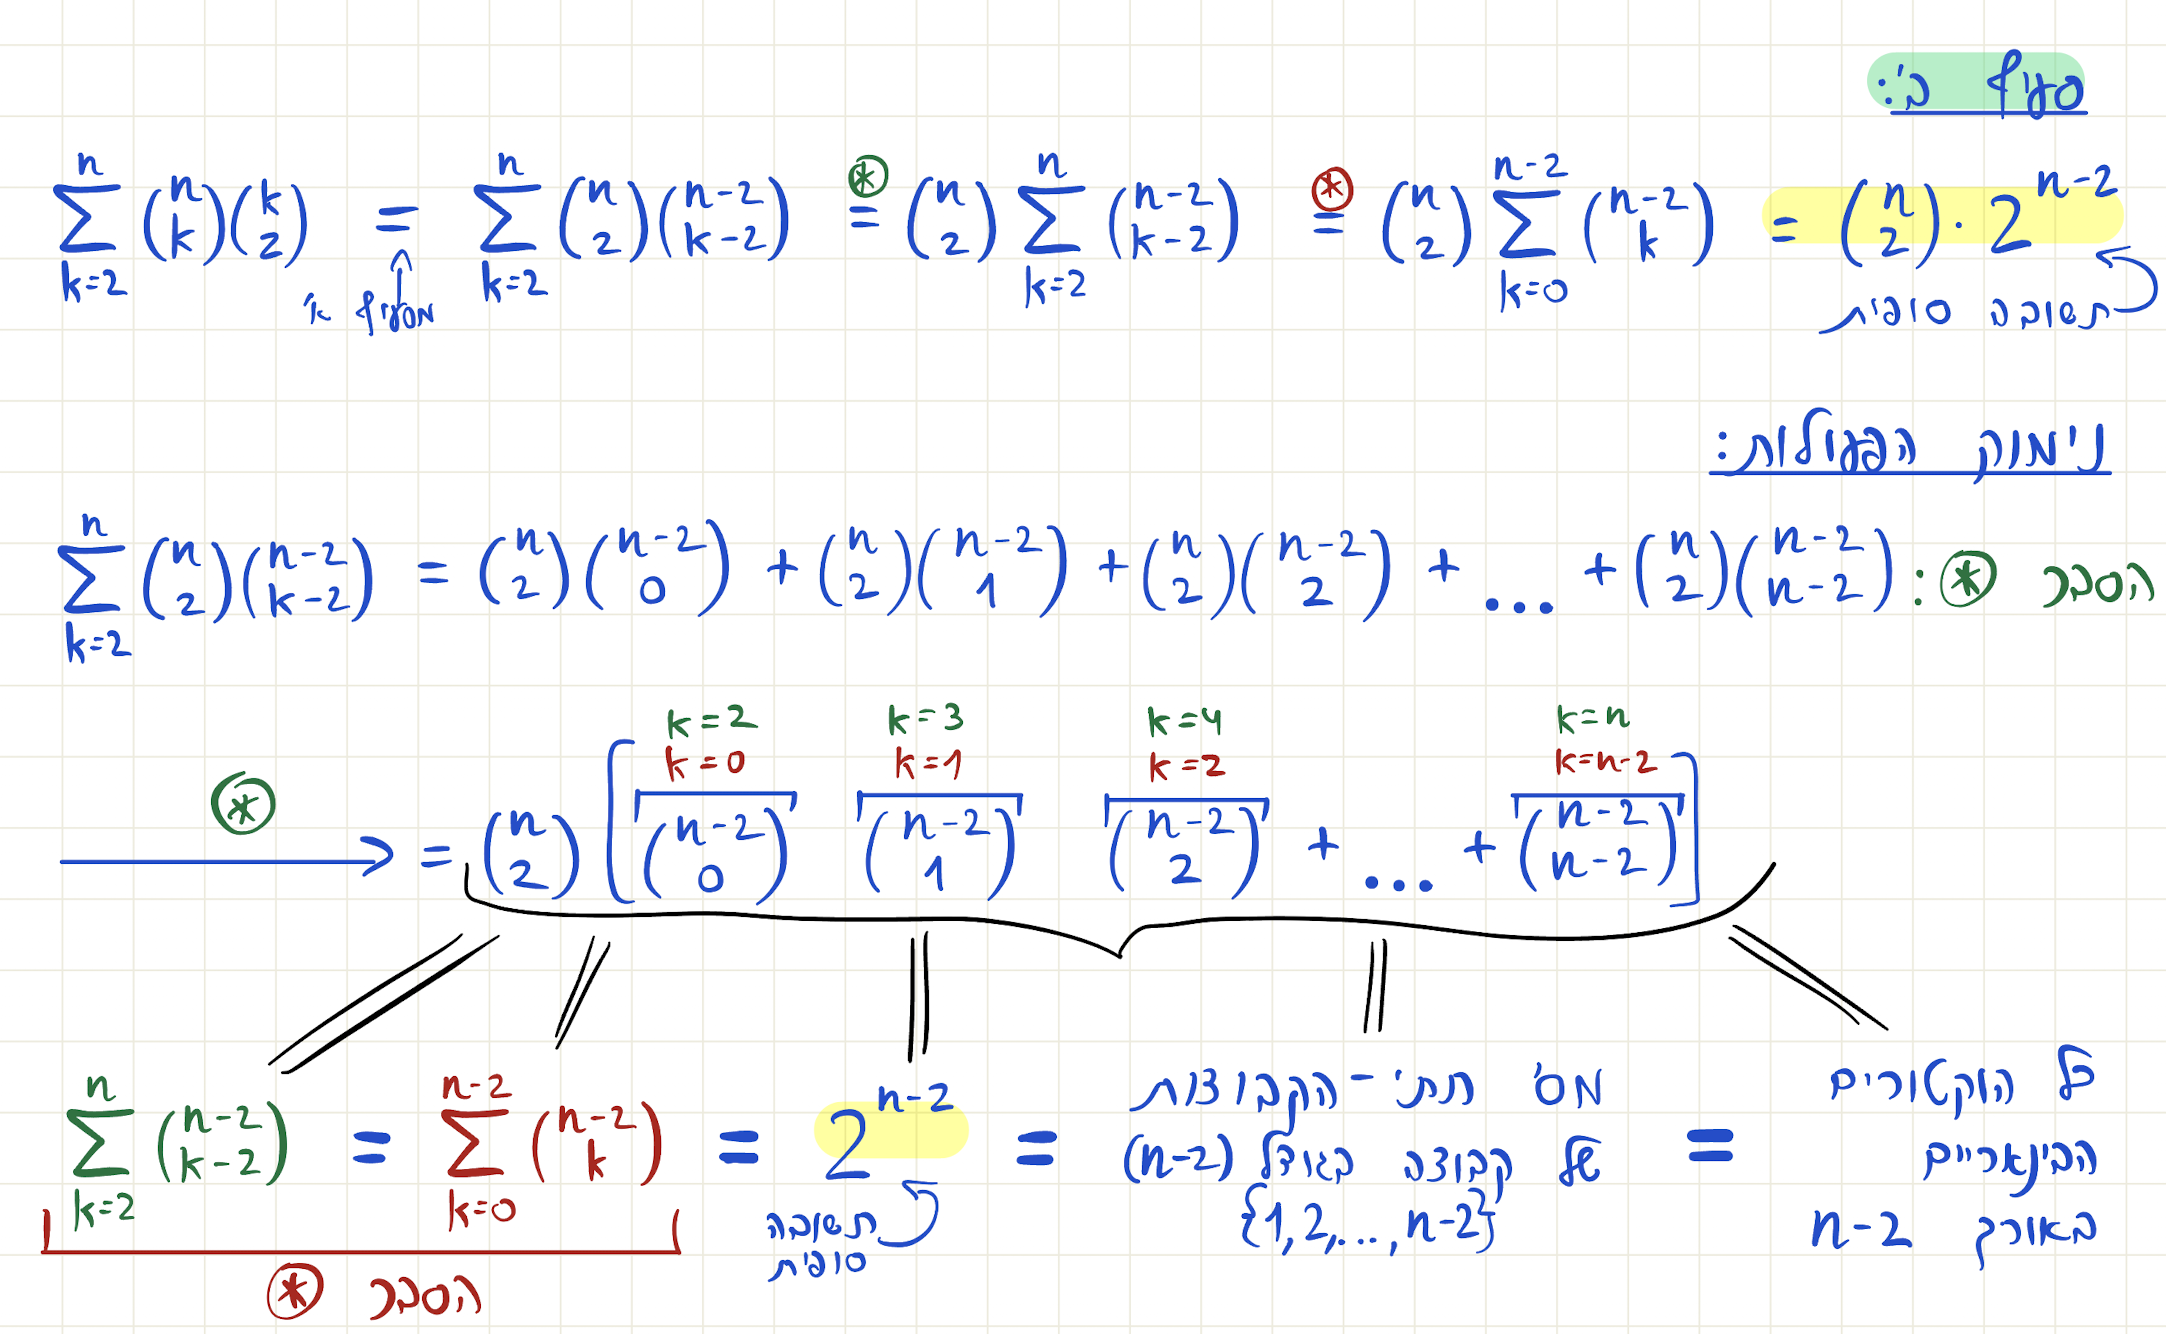 סעיף ב':
$\sum_{k=2}^{n} \binom{n}{k}\binom{k}{2} = \sum_{k=2}^{n} \binom{n}{2}\binom{n-2}{k-2} \overset{⊛}{=} \binom{n}{2} \sum_{k=2}^{n} \binom{n-2}{k-2} \overset{⊛}{=} \binom{n}{2} \sum_{k=0}^{n-2} \binom{n-2}{k} = \binom{n}{2} \cdot 2^{n-2}$
מסעיף א'
תשובה סופית
נימוק הפעולות:
הסבר ⊛: $\sum_{k=2}^{n} \binom{n}{2}\binom{n-2}{k-2} = \binom{n}{2}\binom{n-2}{0} + \binom{n}{2}\binom{n-2}{1} + \binom{n}{2}\binom{n-2}{2} + \dots + \binom{n}{2}\binom{n-2}{n-2}$
k=2 k=3 k=4 k=n
k=0 k=1 k=2 k=n-2
$⊛ \longrightarrow = \binom{n}{2} \left[ \binom{n-2}{0} \binom{n-2}{1} \binom{n-2}{2} + \dots + \binom{n-2}{n-2} \right]$
$\sum_{k=2}^{n} \binom{n-2}{k-2} = \sum_{k=0}^{n-2} \binom{n-2}{k} = 2^{n-2} =$
מס' תתי-הקבוצות
של קבוצה בגודל (n-2)
{1,2,...,n-2}
=
כל הוקטורים
הבינאריים
באורך n-2
תשובה
סופית
הסבר ⊛